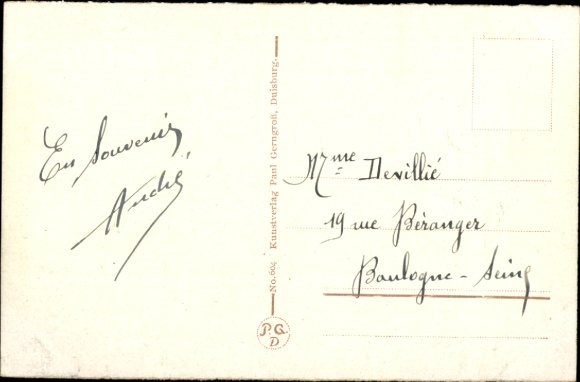 En Souvenir
André
No. 604 Kunstverlag Paul Gerngroß, Duisburg.
P.G.
D
Mme Devillié
19 rue Béranger
Boulogne - Seine